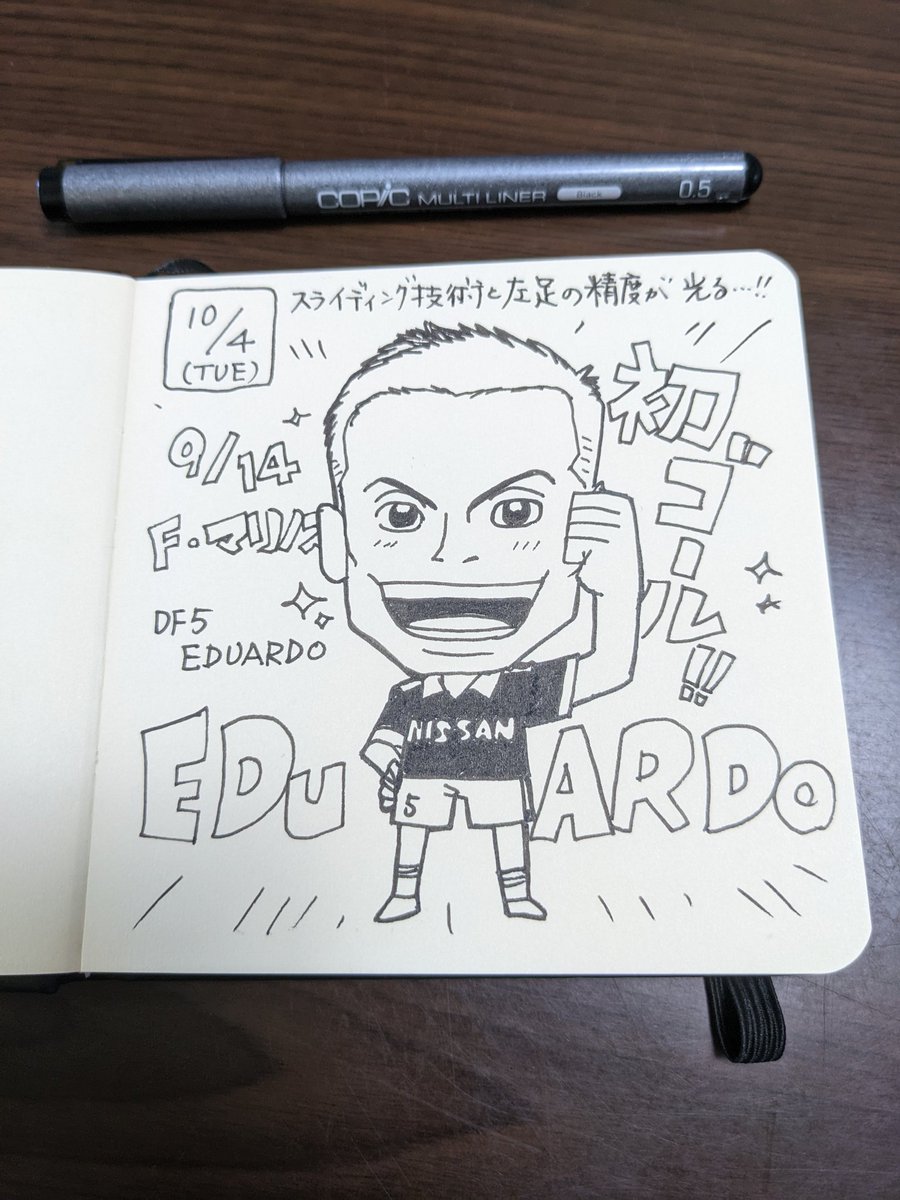 COPIC MULTI LINER Black 0.5
10/4
(TUE)
スライディング技術と左足の精度が光る…!!
9/14
F・マリノス
DF5
EDUARDO
初ゴール!!
NISSAN
5
EDUARDO